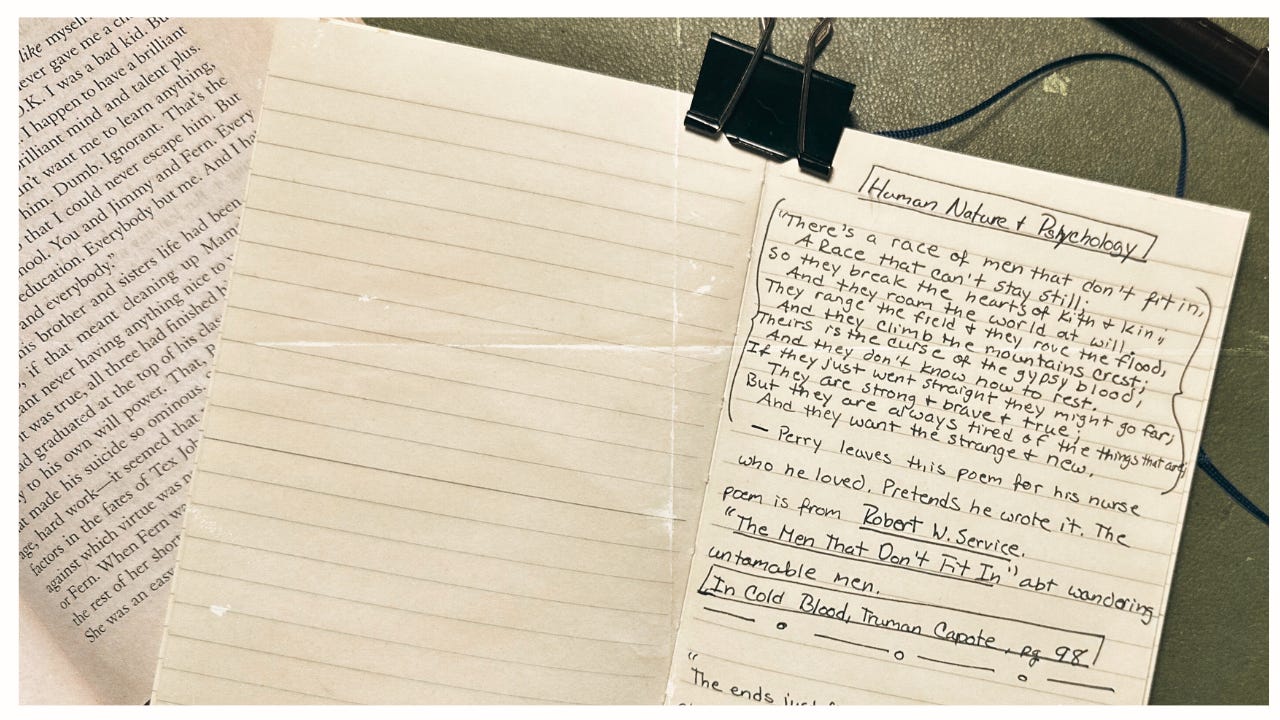 like myself
ever gave me a ch
O.K. I was a bad kid. Bu
I happen to have a brilliant
brilliant mind and talent plus.
n't want me to learn anything,
him. Dumb. Ignorant. That's the
that I could never escape him. But
ool. You and Jimmy and Fern. Every
education. Everybody but me. And I ha
and everybody."
his brother and sisters life had been
if that meant cleaning up Mam
ant never having anything nice to w
it was true, all three had finished h
ad graduated at the top of his clas
y to his own will power. That, P
at made his suicide so ominous.
age, hard work—it seemed that
factors in the fates of Tex Jo
against which virtue was n
or Fern. When Fern wa
the rest of her short
She was an easy
Human Nature & Pshychology
"There's a race of men that don't fit in,
A Race that can't stay still;
So they break the hearts of kith & kin;
And they roam the world at will.
They range the field & they rove the flood,
And they climb the mountains crest;
Theirs is the curse of the gypsy blood,
And they don't know how to rest.
If they just went straight they might go far;
They are strong & brave & true;
But they are always tired of the things that are,
And they want the strange & new.
- Perry leaves this poem for his nurse
who he loved. Pretends he wrote it. The
poem is from Robert W. Service.
"The Men That Don't Fit In" abt wandering
untamable men.
In Cold Blood, Truman Capote, pg 98
"The ends just